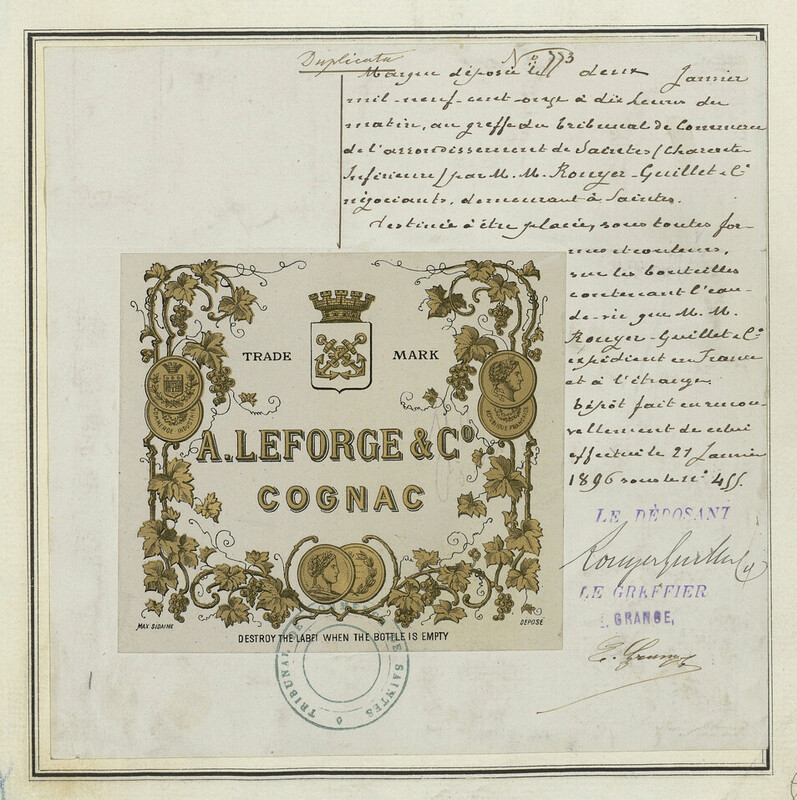 Duplicata
N° 773
Marque déposée le deux Janvier
mil-neuf-cent-onze à dix heures du
matin, au greffe du Tribunal de Commerce
de l'arrondissement de Saintes (Charente
Inférieure) par M. M. Rouyer-Guillet & Cie
négociants, demeurant à Saintes.
destinée à être placée, sous toutes for-
mes et couleurs,
sur les bouteilles
contenant l'eau-
de-vie que M. M.
Rouyer-Guillet & Cie
expédient en France
et à l'étranger.
Dépôt fait en renou-
vellement de celui
effectué le 21 Janvier
1896 sous le N° 455.
LE DÉPOSANT
Rouyer Guillet & Cie
LE GREFFIER
GRANGE,
TRADE MARK
COMMERCE INDUSTRIE
REPUBLIQUE FRANÇAISE
A. LEFORGE & Co.
COGNAC
MAX SIDAINE
DEPOSÉ
DESTROY THE LABEL WHEN THE BOTTLE IS EMPTY
TRIBUNAL DE COMMERCE DE SAINTES